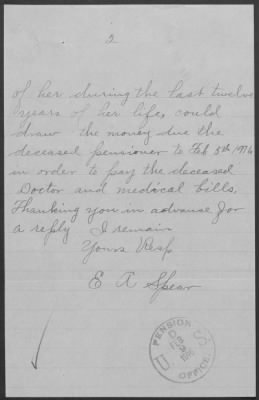 2
of her during the last twelve
years of her life, could
draw the money due the
deceased pensioner to Feb 5th
in order to pay the deceased
Doctor and medical bills.
Thanking you in advance for
a reply I remain
Yours Resp
E A Spear
U. S. PENSION OFFICE
FEB